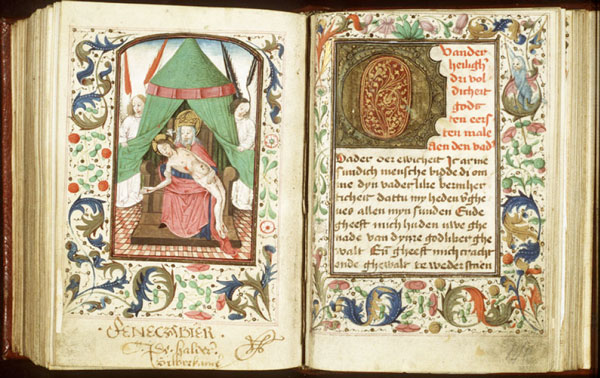 O
Vander
heiligh
dri vol
dicheit
gods
ten eers
ten male
Aen den vad'
Vader der ewicheit Ic arme
sundich mensche bidde di om
me dyn vaderlike bermher
ticheit dattu my heden v'ghe
ves allen myn sunden Ende
gheeft mich huden uwe ghe
nade van dynre ghe
walt Eñ gheeft mich macht
ende ghewalt te wederstaen